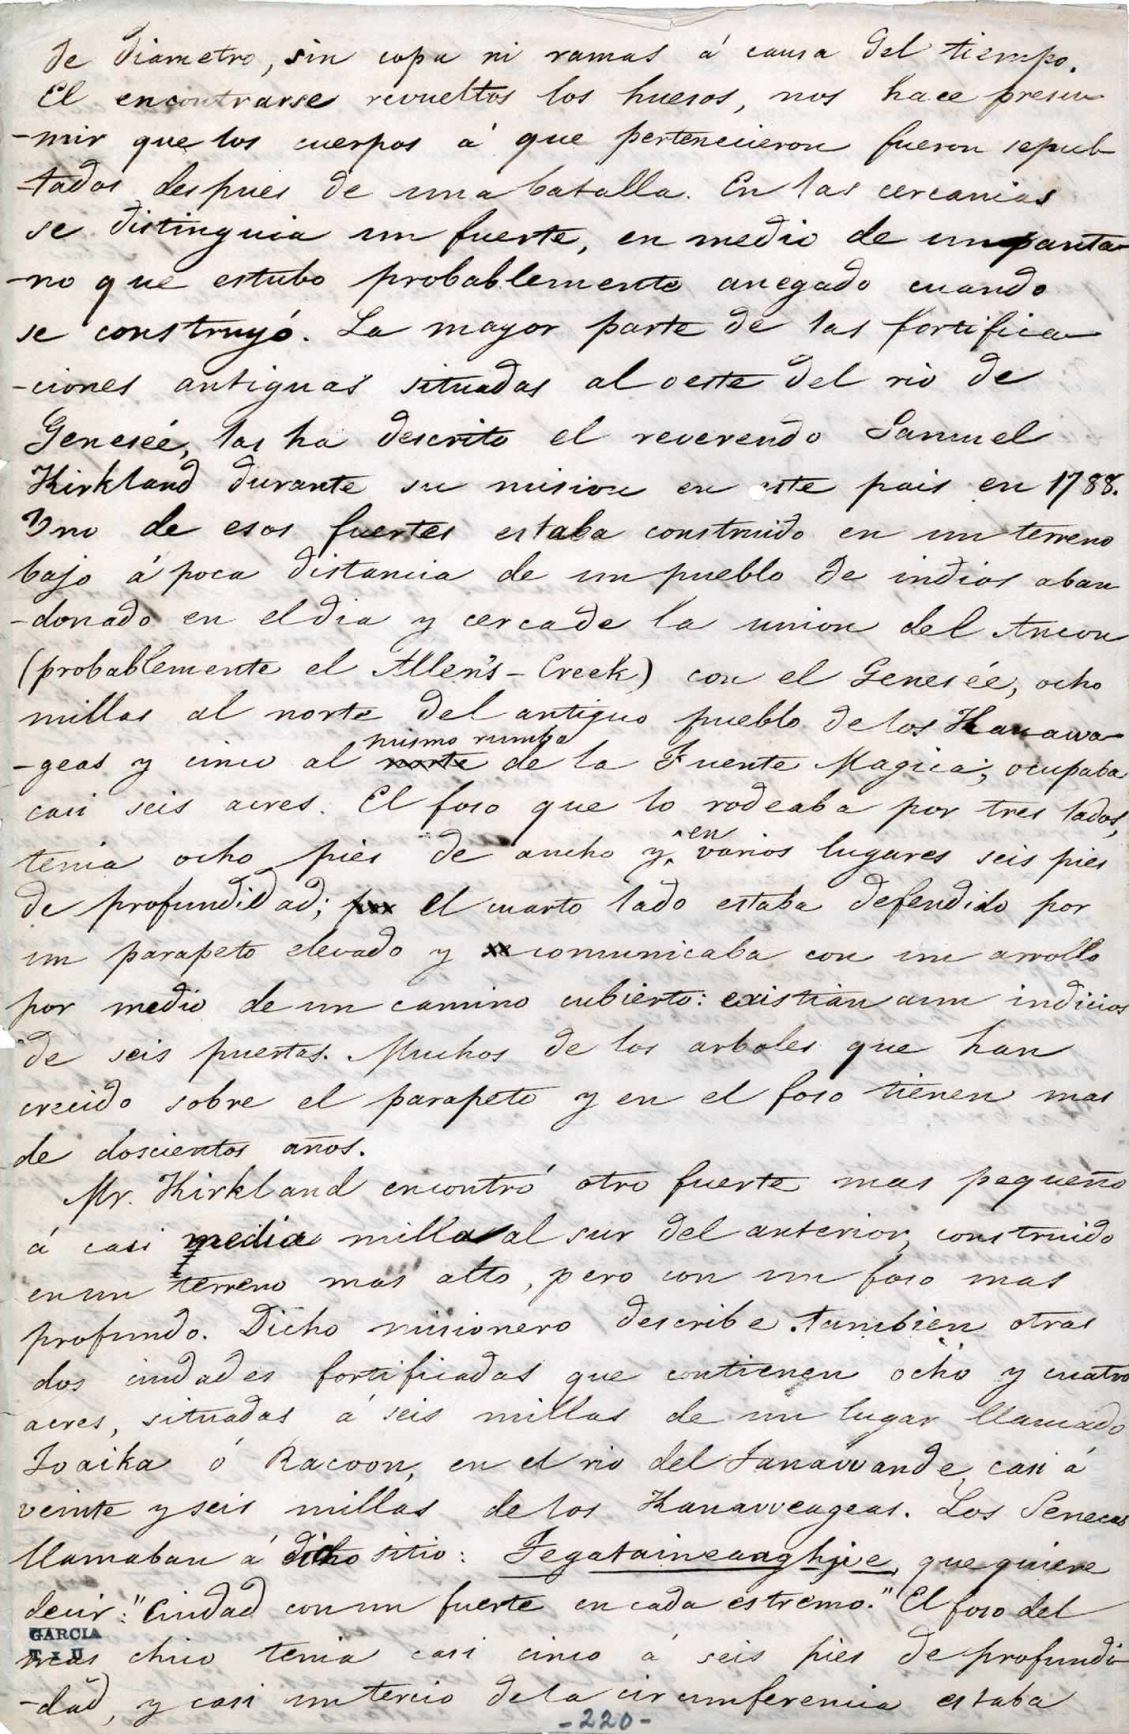 de diametro, sin copa ni ramas á causa del tiempo.
El encontrarse revueltos los huesos, nos hace presu-
-mir que los cuerpos á que pertenecieron fueron sepul-
-tados despues de una batalla. En las cercanias
se distinguia un fuerte, en medio de un panta-
-no que estubo probablemente anegado cuando
se construyó. La mayor parte de las fortifica-
-ciones antiguas situadas al oeste del rio de
Geneseé, las ha descrito el reverendo Samuel
Kirkland durante su mision en este pais en 1788.
Uno de esos fuertes estaba construido en un terreno
bajo á poca distancia de un pueblo de indios aban
-donado en el dia y cerca de la union del Ancon
(probablemente el Allen's-Creek) con el Geneseé, ocho
millas al norte del antiguo pueblo de los Kanawa-
mismo rumbo
-geas y cinco al norte de la Fuente Magica; ocupaba
casi seis acres. El foso que lo rodeaba por tres lados,
en
tenia ocho pies de ancho y varios lugares seis pies
de profundidad; el cuarto lado estaba defendido por
un parapeto elevado y comunicaba con un arrollo
por medio de un camino cubierto: existian aun indicios
de seis puertas. Muchos de los arboles que han
crecido sobre el parapeto y en el foso tienen mas
de doscientos años.
Mr. Kirkland encontró otro fuerte mas pequeño
á casi media milla al sur del anterior, construido
en un terreno mas alto, pero con un foso mas
profundo. Dicho misionero describe tambien otras
dos ciudades fortificadas que contienen ocho y cuatro
acres, situadas á seis millas de un lugar llamado
Joaika ó Racoon, en el rio del Tanawande, casi á
veinte y seis millas de los Kanawageas. Los Senecas
llamaban á dicho sitio: Tegataineaaghjve, que quiere
decir: "Ciudad con un fuerte en cada estremo." El foso del
GARCIA
mas chico tenia casi cinco á seis pies de profundi-
-dad, y casi un tercio de la circumferencia estaba
-220-